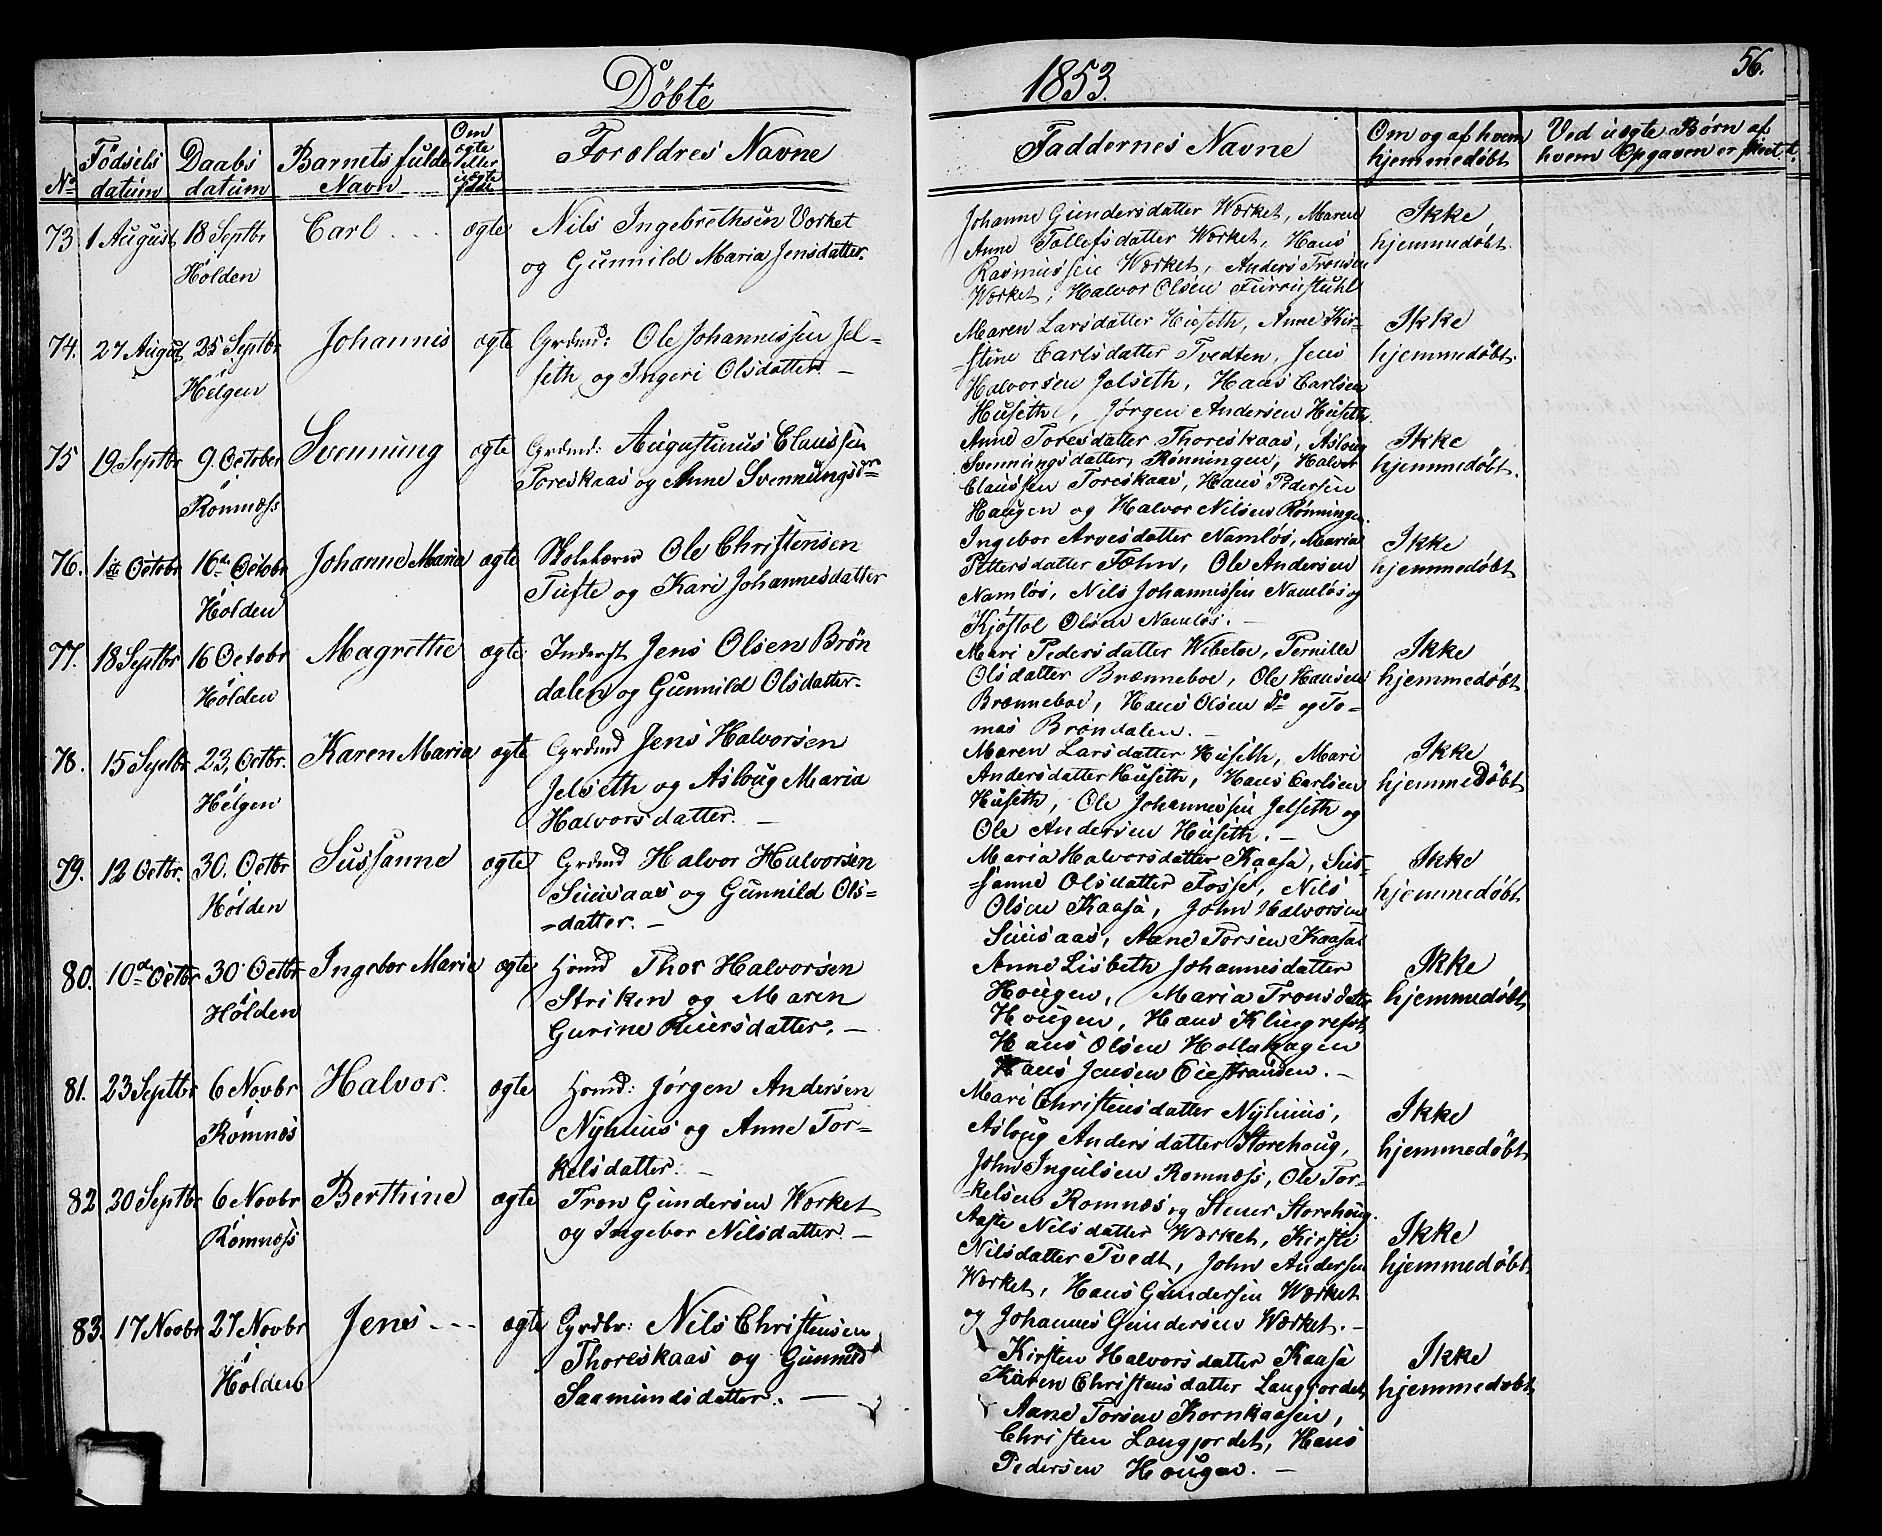 Döbte
1853.
56.
No
Födsels datum
Daabs datum
Barnets fulde Navn
Om ægte eller uægte født
Foræeldres Navne
Faddernes Navne
Om og af hvem hjemmedöbt
Ved uægte Börn af hvem Opgaven er skeet
73 1 August 18 Septbr Carl ægte Nils Ingebrethsen Værket
Holden og Gunnild Maria Jensdatter.
Johanne Gundersdatter Wærket, Maren
Anne Tollefsdatter Wærket, Hans
Rasmussen Wærket, Anders Tronsen
Wærket, Halvor Olsen Furrustuhl
Ikke
hjemmedöbt.
74. 27 August 25 Septbr Johannis ægte Grdmd: Ole Johannissen Jel-
Helgen seth og Ingeri Olsdatter. –
Maren Larsdatter Huseth, Anne Kir-
-stine Carlsdatter Tvedten, Jens
Halvorsen Jelseth, Hans Carlsen
Huseth, Jörgen Andersen Huseth
Ikke
hjemmedöbt.
75 19 Septbr 9 October Svenning ægte Grdmd: Augustinus Claussen
Romnæss Toreskaas og Anne Svennungsdr
Anne Toresdatter Thoreskaas, Asloug
Svenningsdatter, Rönningen, Halvor
Claussen Toreskaas, Hans Pedersen
Haugen og Halvor Nilsen Rönningen.
Ikke
hjemmedöbt.
76. 1ste Octobr 16de Octobr Johanne Maria ægte Skolelærer Ole Christensen
Holden Tufte og Kari Johannesdatter
Ingebor Arvesdatter Namlös, Maria
Pettersdatter Fæhn, Ole Andersen
Namlös, Nils Johannissen Namlös og
Kjöstol Olsen Namlös. –
Ikke
hjemmedöbt
77. 18 Septbr 16 Octobr Magrethe ægte Inderst Jens Olsen Brön
Holden dalen og Gunnild Olsdatter-
Mari Pedersdatter Wibetoe, Pernille
Olsdatter Brænneboe, Ole Hansen
Brænneboe, Hans Olsen do og To-
mas Bröndalen. –
Ikke
hjemmedöbt
78. 15 Septbr 23, Octbr. Karen Maria ægte Grdmd Jens Halvorsen
Helgen Jelseth og Asloug Maria
Halvorsdatter. –
Maren Larsdatter Huseth, Mari
Andersdatter Huseth, Hans Carlsen
Huseth, Ole Johannissen Jelseth og
Ole Andersen Huseth. –
Ikke
hjemmedöbt
79. 12 Octbr. 30, Octbr Sussanne ægte Grdmd Halvor Halvorsen
Holden Suusaas og Gunnild Ols-
-datter. –
Maria Halvorsdatter Kaasa, Sus-
-sanne Olsdatter Fosse, Nils
Olsen Kaasa, John Halvorsen
Suusaas, Aane Torsen Kaasa
Ikke
hjemmedöbt
80. 10de Octbr 30 Octbr Ingebor Marie ægte Hsmd Thor Halvorsen
Holden Striken og Maren
Gurine Reiersdatter. –
Anne Lisbeth Johannesdatter
Hougen, Maria Tronsdatter
Hougen, Hans
Hans Olsen Hollahagen
Hans Jensen. –
Ikke
hjemmedöbt
81. 23 Septbr 6 Novbr Halvor. ægte Hsmd: Jörgen Andersen
Romnæs Nyhuus og Anne Tor-
kelsdatter. –
Mari Christensdatter Nyhuus,
Asloug Andersdatter Storehoug,
John Ingulsen Romnæss, Ole Tor-
-kelsen Romnæs og Stener Storehoug.
Ikke
hjemmedöbt
82 20 Septbr 6 Novbr Berthine ægte Tron Gundersen Wærket
Romnæss og Ingebor Nilsdatter –
Aaste Nilsdatter Wærket, Kirsti
Nilsdatter Tvedt, John Andersen
Wærket, Hans Gundersen Wærket
og Johannes Gundersen Wærket. –
Ikke
hjemmedöbt
83. 17 Novbr 27 Novbr Jens ægte Grdbr: Nils Christensen
Holden Thoreskaas og Gunnild
Saamundsdatter. –
Kirsten Halvorsdatter Kaasa
Karen Christensdatter Langfordet,
Aane Torsen Kornkaasen,
Christen Langjordet, Hans
Pedersen Hougen. –
Ikke
hjemmedöbt